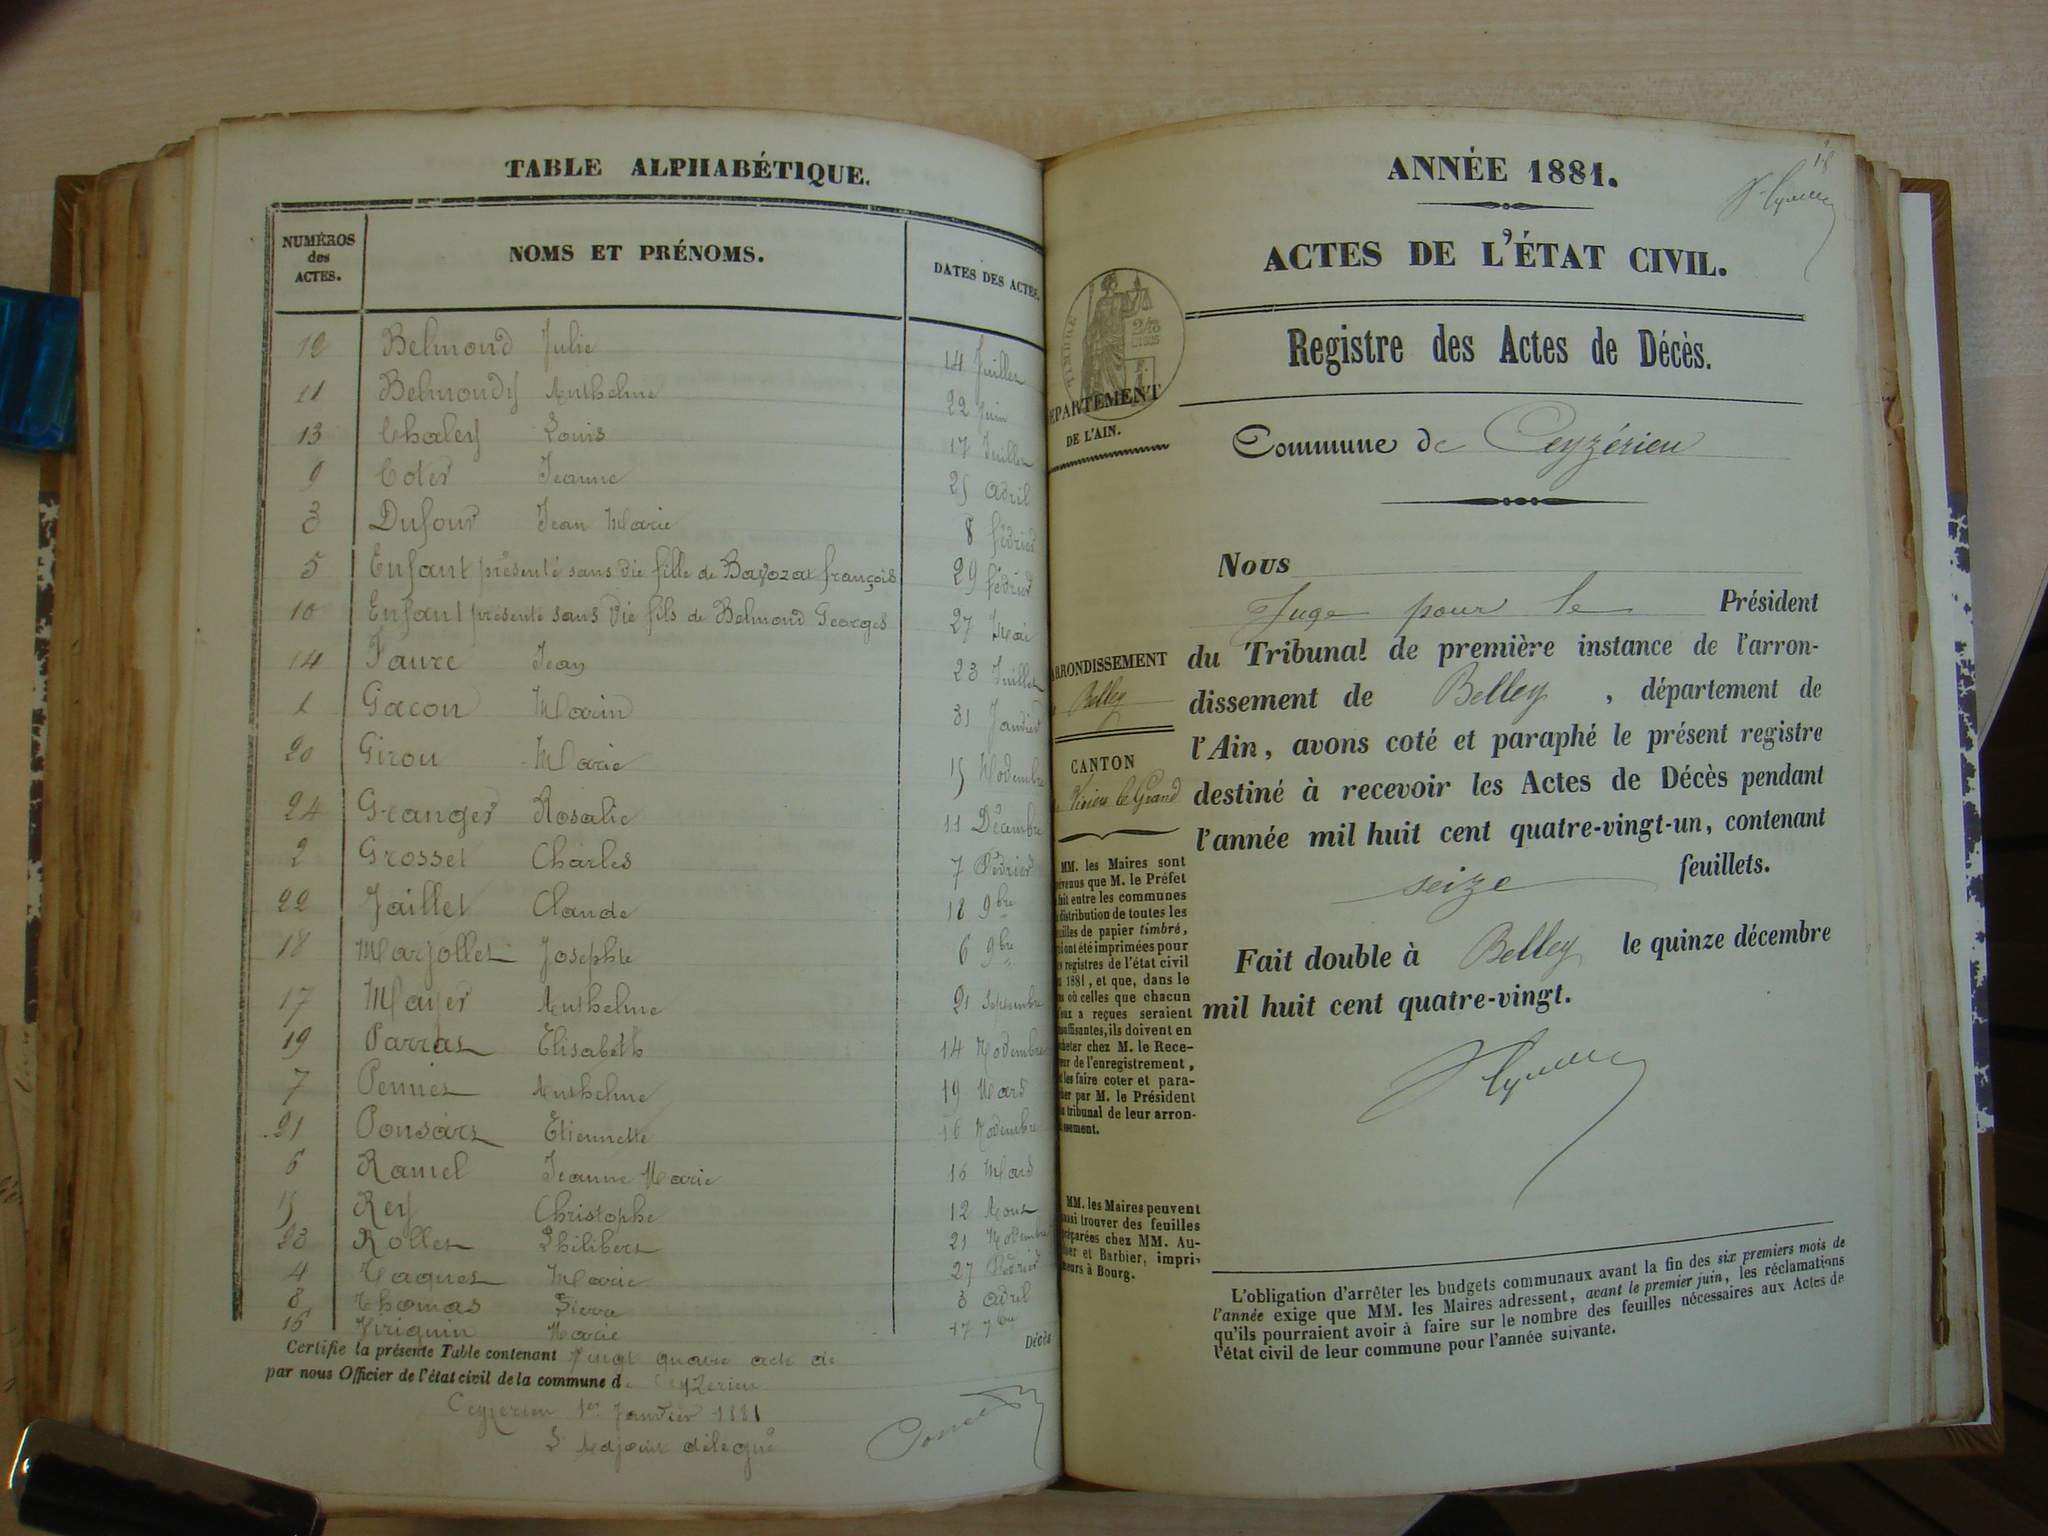 TABLE ALPHABÉTIQUE.
NUMÉROS des ACTES.
NOMS ET PRÉNOMS.
DATES DES ACTES.
12 Belmond Julie 14 Juillet
11 Belmondy Anthelme 22 Juin
13 Chaley Louis 17 Juillet
9 Coter Jeanne 25 avril
3 Dufour Jean Marie 8 février
5 Enfant présenté sans vie fille de Bavozat françois 29 février
10 Enfant présenté sans vie fils de Belmond Georges 27 Mai
14 Faure Jean 23 Juillet
1 Gacon Marin 31 Janvier
20 Girou Marie 15 Novembre
24 Granger Rosalie 11 Décembre
2 Grosset Charles 7 Février
22 Jaillet Claude 18 9bre
18 Marjollet Josephte 6 9bre
17 Mayer Anthelme 21 Septembre
19 Parraz Elisabeth 14 Novembre
7 Pennier Anthelme 19 Mars
21 Ponsart Etiennette 16 Novembre
6 Ramel Jeanne Marie 16 Mars
15 Rey Christophe 12 Aout
23 Rollet Philibert 21 Novembre
4 Taquet Marie 27 Février
8 Thomas Pierre 3 avril
16 Viriguin Marie 17 7bre
Certifie la présente Table contenant vingt quatre acte de Décès
par nous Officier de l'état civil de la commune d Ceyzerieu
Ceyzerieu 1er Janvier 1881
L'Adjoint délégué
ANNÉE 1881.
ACTES DE L'ÉTAT CIVIL.
TIMBRE
Registre des Actes de Décès.
DÉPARTEMENT
DE L'AIN.
Commune de Ceyzérieu
Nous
Juge pour le Président
du Tribunal de première instance de l'arron-
dissement de Belley, département de
l'Ain, avons coté et paraphé le présent registre
destiné à recevoir les Actes de Décès pendant
l'année mil huit cent quatre-vingt-un, contenant
seize feuillets.
Fait double à Belley le quinze décembre
mil huit cent quatre-vingt.
ARRONDISSEMENT
Belley
CANTON
Virieu le Grand
MM. les Maires sont
prévenus que M. le Préfet
fait entre les communes
distribution de toutes les
feuilles de papier timbré,
qui ont été imprimées pour
les registres de l'état civil
1881, et que, dans le
cas où celles que chacun
d'eux a reçues seraient
insuffisantes, ils doivent en
acheter chez M. le Rece-
veur de l'enregistrement,
et les faire coter et para-
pher par M. le Président
du tribunal de leur arron-
dissement.
MM. les Maires peuvent
aussi trouver des feuilles
préparées chez MM. Au-
thier et Barbier, impri-
meurs à Bourg.
L'obligation d'arrêter les budgets communaux avant la fin des six premiers mois de
l'année exige que MM. les Maires adressent, avant le premier juin, les réclamations
qu'ils pourraient avoir à faire sur le nombre des feuilles nécessaires aux Actes de
l'état civil de leur commune pour l'année suivante.